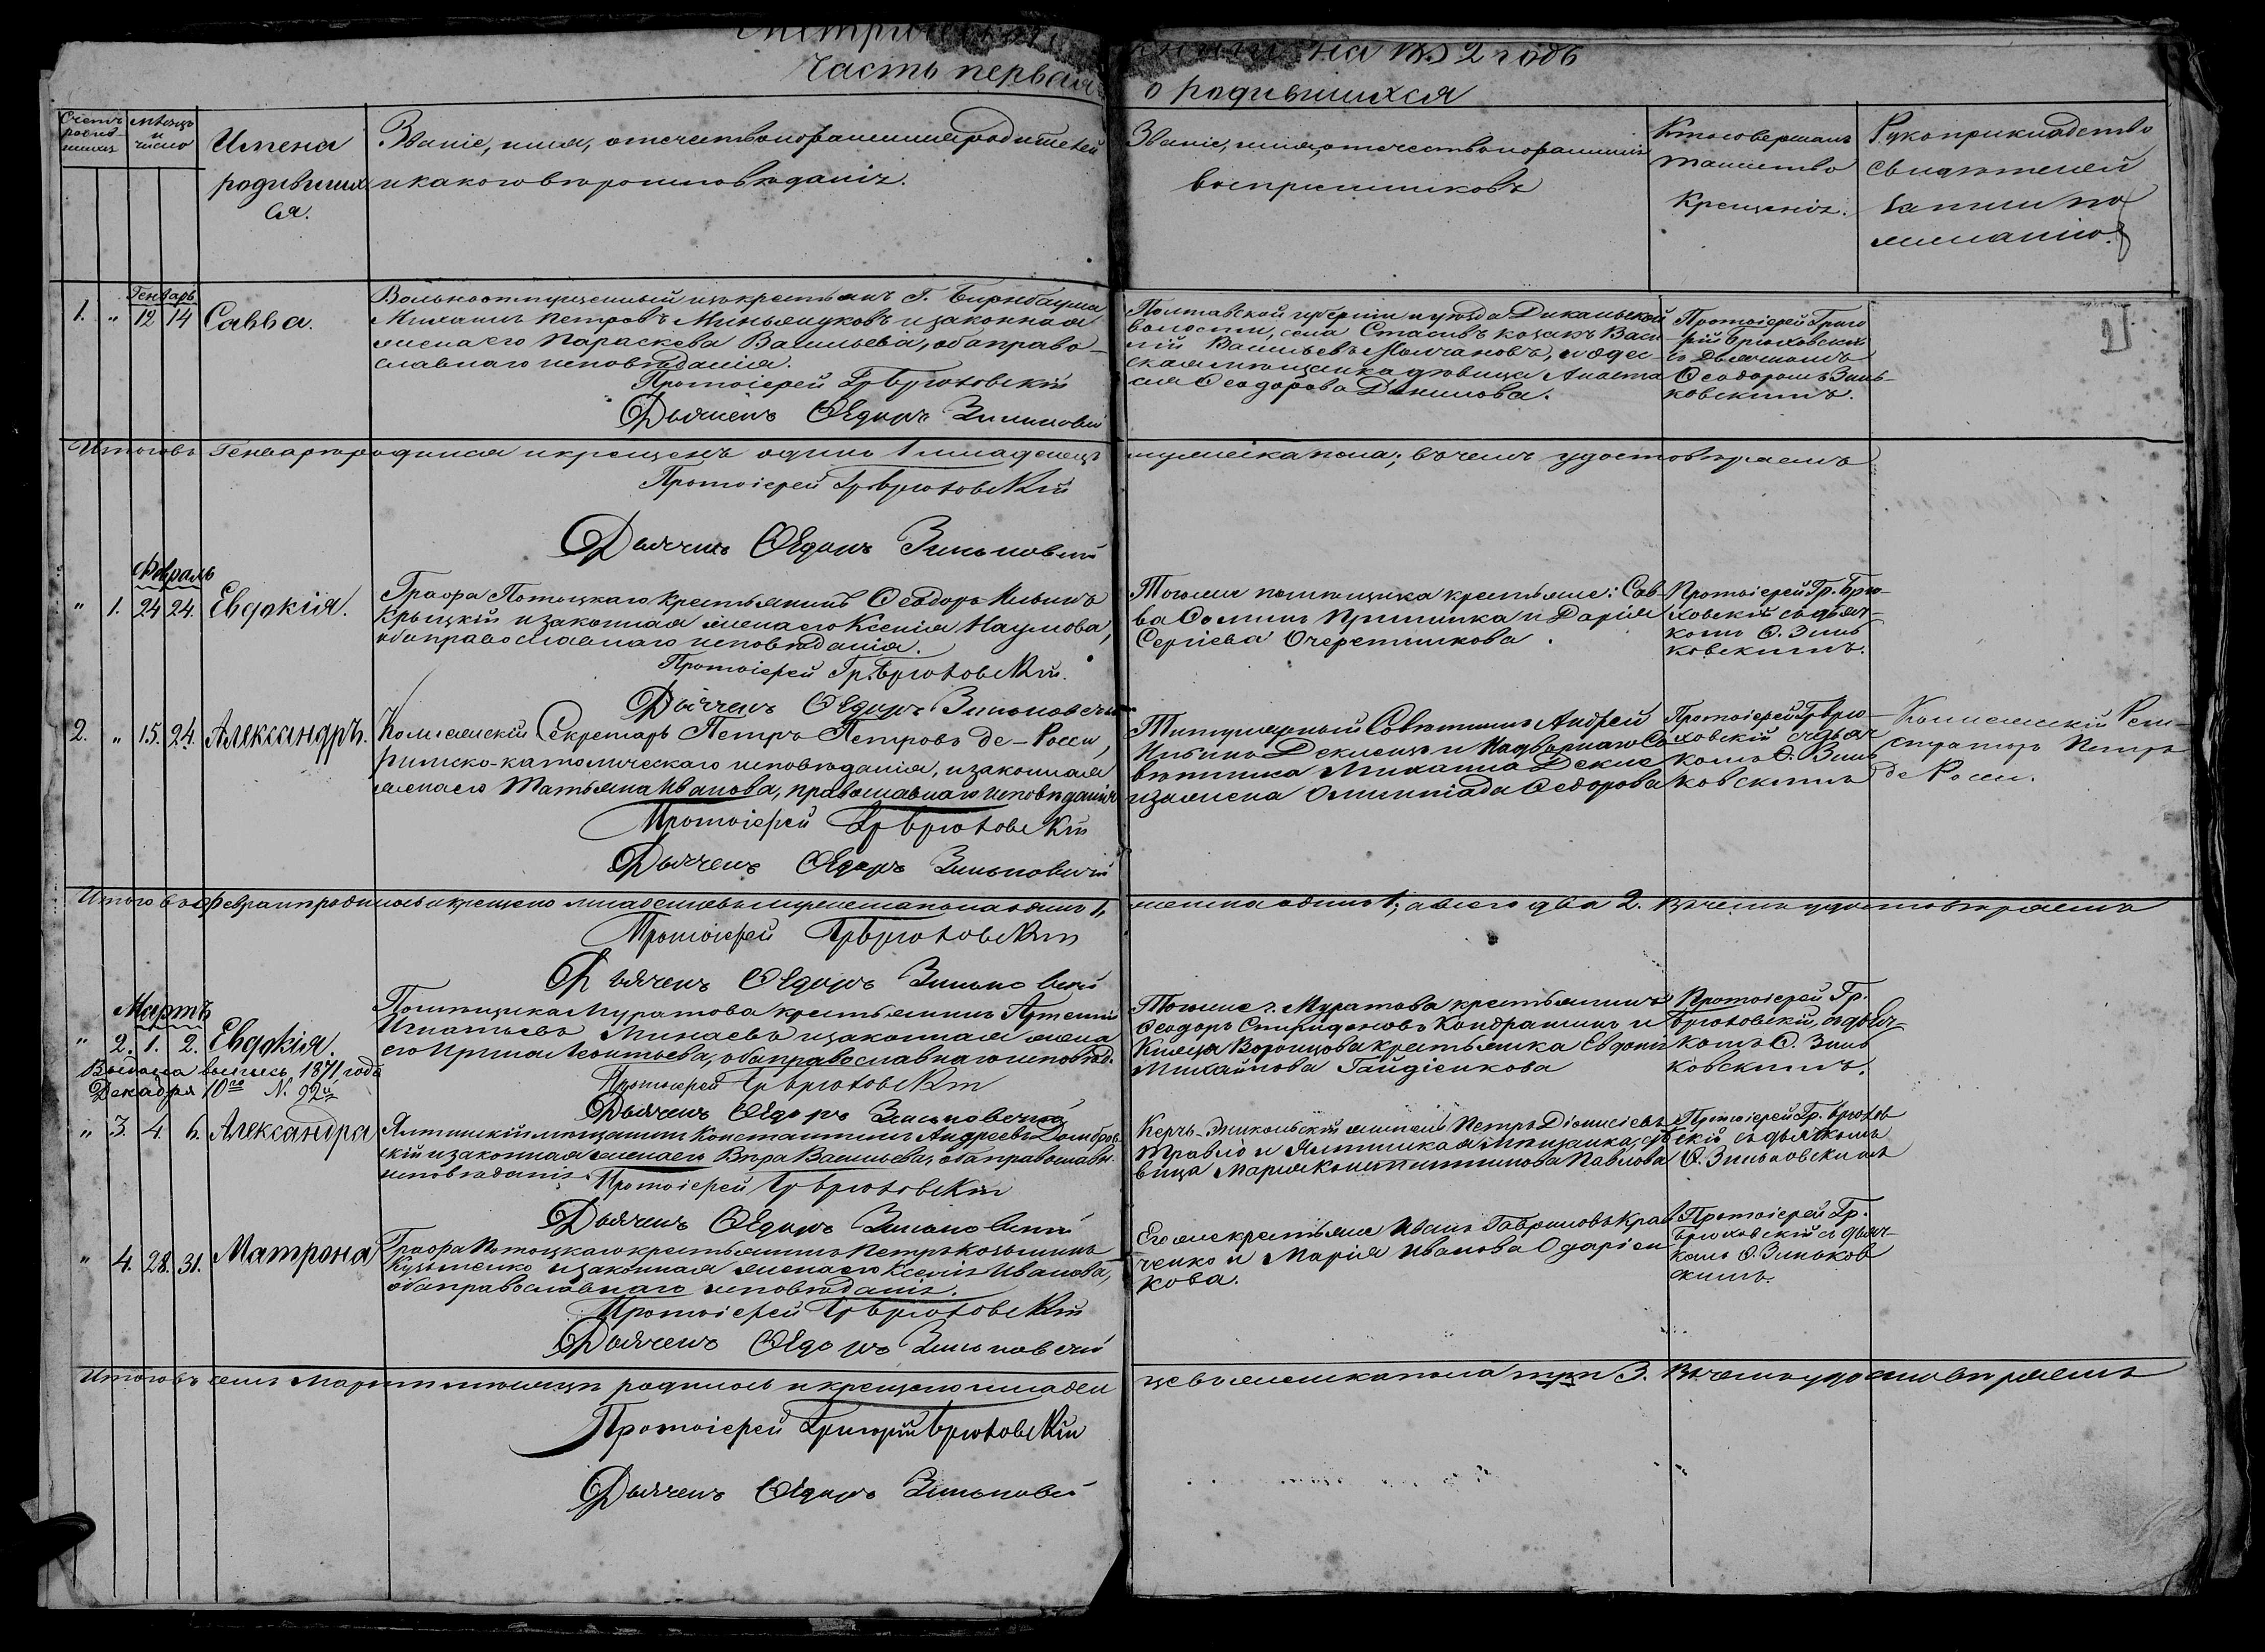 Часть первая
на 1852 годъ
о родившихся
Счетъ родив-шихся
Мѣсяцъ и число
Имена родившихся.
Званіе, имя, отчество и фамилія родителей
и какого вѣроисповѣданія.
Званіе, имя, отчество и фамилія
воспріемниковъ
Кто совершалъ
таинство
Крещенія.
Рукоприкладство
свидѣтелей
записи по
желанію.
Генварь
1. " 12 14 Савва.
Вольноотпущенный изъ крестьянъ Г. Бирнбаума
Михаилъ Петровъ и законная
жена его Параскева Васильева, оба право-
славнаго исповѣданія.
Протоіерей Гр Брюховскій
Дьячекъ Ѳедоръ Зиньковскій
Полтавской губерніи и уѣзда Диканьской
волости, села козакъ Васи-
лій Васильевъ Молчановъ, и одес-
ская мѣщанка дѣвица Анаста
сія Ѳеодорова Данилова.
Протоіерей Григо
рій Брюховскій
съ Дьячкомъ
Ѳеодоромъ Зинь-
ковскимъ.
Итого въ Генварѣ родился и крещенъ одинъ 1 младенецъ
мужеска пола; въ чемъ удостовѣряемъ
Протоіерей Гр Брюховскій
Дьячекъ Ѳедоръ Зиньковскій
Февраль
" 1. 24 24. Евдокія.
Графа Потоцкаго крестьянинъ Ѳеодоръ Ильинъ
Крыцкій и законная жена его Ксенія Наумова,
оба православнаго исповѣданія.
Протоіерей Гр. Брюховскій.
Дьячекъ Ѳедоръ Зиньковскій
Того же помѣщика крестьяне: Сав-
ва Ѳоминъ и Дарія
Сергіева Очеретникова.
Протоіерей Гр. Брю-
ховскій съ дьяч-
комъ Ѳ. Зинь
ковскимъ.
2. " 15. 24. Александръ.
Колежскій Секретарь Петръ Петровъ де-Росси,
римско-католическаго исповѣданія, и законная
жена его Татьяна Иванова, православнаго исповѣданія
Протоіерей Гр Брюховскій
Дьячекъ Ѳедоръ Зиньковскій
Титулярный Совѣтникъ Андрей
Ильинъ и Надворнаго Со
вѣтника Михаила
жена Олимпіада Ѳедорова
Протоіерей Гр Брю-
ховскій съ дьяч
комъ Ѳ. Зинь
ковскимъ
Колежскій
Петръ
де Росси.
Итого въ Февралѣ родилось и крещено младенцевъ мужеска пола одинъ 1,
женска одинъ 1; а всего два 2. Въ чемъ удостовѣряемъ
Протоіерей Гр Брюховскій
Дьячекъ Ѳедоръ Зиньковскій
Мартъ
" 2. 1. 2. Евдокія.
Выдана выпись 1871 года
Декабря 10го N. 92й
Помѣщика Муратова крестьянинъ Артемій
Игнатьевъ Минаевъ и законная жена
его Ирина Леонтьева, оба православнаго исповѣд.
Протоіерей Гр Брюховскій
Дьячекъ Ѳедоръ Зиньковскій
Того же г. Муратова крестьянинъ
Ѳеодоръ Спиридоновъ Кондрашинъ и
Князя Воронцова крестьянка Евдокія
Михайлова
Протоіерей Гр.
Брюховскій, съ дьяч-
комъ Ѳ. Зинь
ковскимъ.
" 3. 4. 6. Александра
Ялтинскій мѣщанинъ Константинъ Андреевъ Домбров-
скій и законная жена его Вѣра Васильева, оба православн.
исповѣданія. Протоіерей Гр Брюховскій
Дьячекъ Ѳедоръ Зиньковскій
Керчь-Эникольскій житель Петръ Діонисіевъ
и Ялтинская мѣщанка, дѣ
вица Марія Константинова Павлова
Протоіерей Гр. Брюхов
скій съ дьячкомъ
Ѳ. Зиньковскимъ
" 4. 28. 31. Матрона
Графа Потоцкаго крестьянинъ Петръ Козьминъ
Кузьменко и законная жена его Ксенія Иванова,
оба православнаго исповѣданія.
Протоіерей Гр Брюховскій
Дьячекъ Ѳедоръ Зиньковскій
Его же крестьяне Иванъ Гавриловъ Крав
ченко и Марія Иванова Одаріен
кова.
Протоіерей Гр.
Брюховскій съ дьяч-
комъ Ѳ. Зиньков
скимъ.
Итого въ семъ Мартѣ мѣсяцѣ родилось и крещено младен
цевъ женска пола три 3. Въ чемъ удостовѣряемъ
Протоіерей Григорій Брюховскій
Дьячекъ Ѳедоръ Зиньковскій